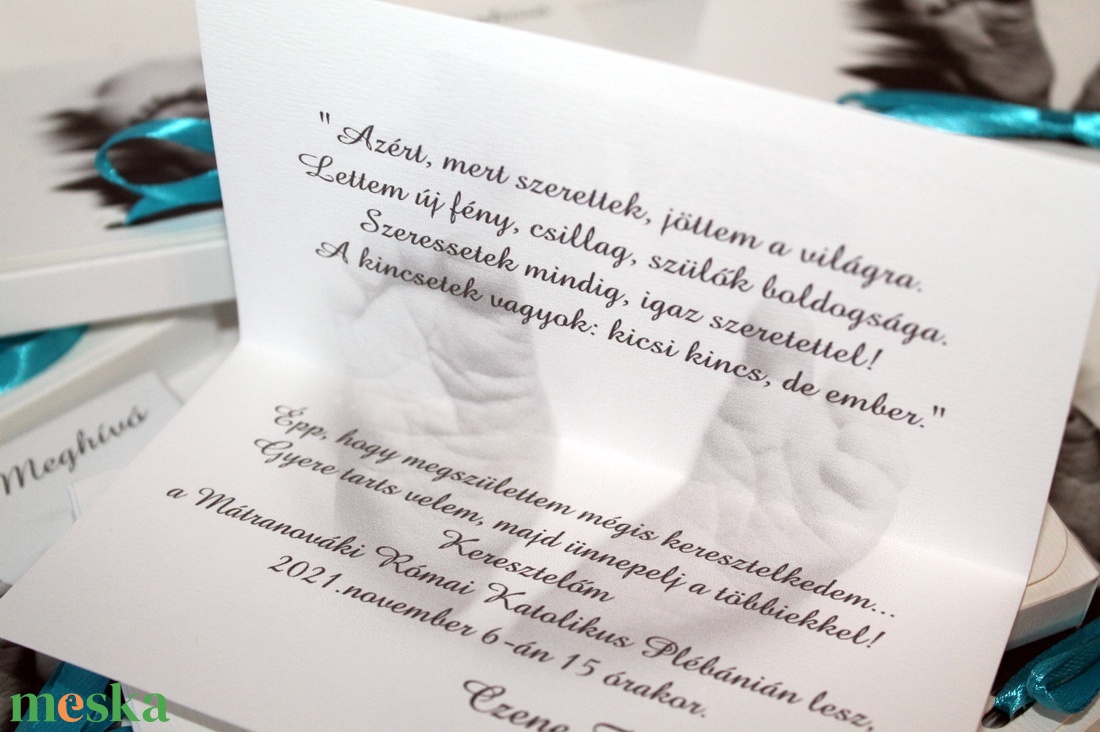 " Azért, mert szerettek, jöttem a világra.
Lettem új fény, csillag, szülők boldogsága.
Szeressetek mindig, igaz szeretettel!
A kincsetek vagyok: kicsi kincs, de ember."
Épp, hogy megszülettem mégis keresztelkedem...
Gyere tarts velem, majd ünnepelj a többiekkel!
Keresztelőm
a Mátranováki Római Katolikus Plébánián lesz,
2021.november 6-án 15 órakor.
Czene
Meghívó
meska